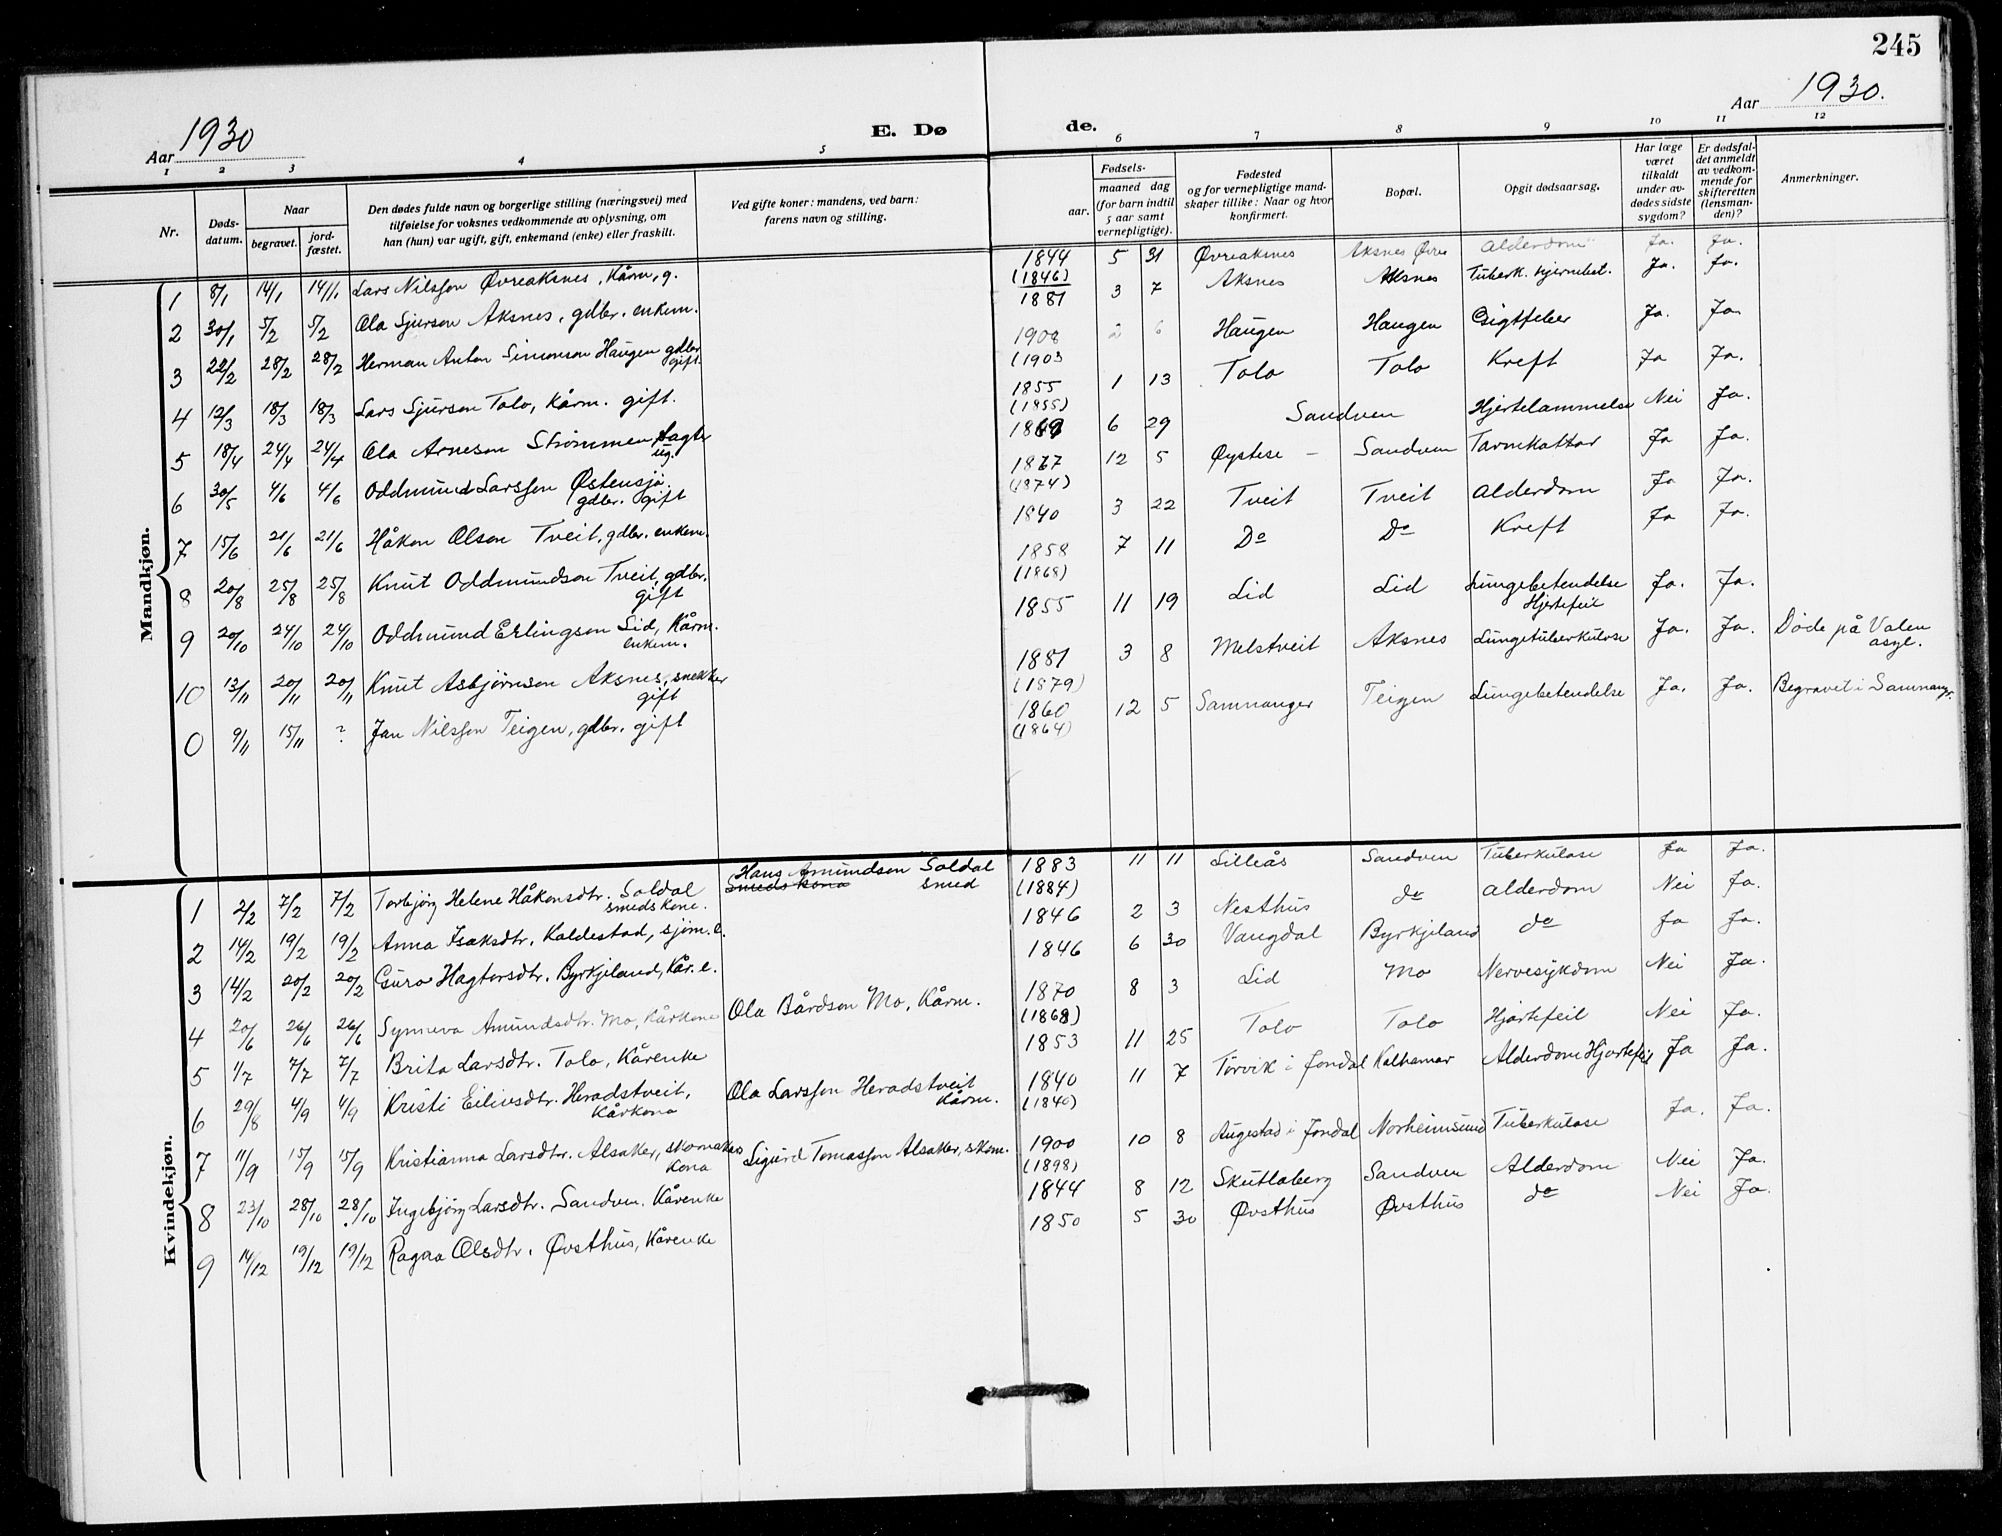 245
Aar 1930
E. Døde.
Aar 1930.
1 2 3 4 5 6 7 8 9 10 11 12
Nr.
Døds-
datum.
Naar
begravet.
jord-
fæstet.
Den dødes fulde navn og borgerlige stilling (næringsvei) med
tilføielse for voksnes vedkommende av oplysning, om
han (hun) var ugift, gift, enkemand (enke) eller fraskilt.
Ved gifte koner: mandens, ved barn:
farens navn og stilling.
Fødsels-
aar.
maaned dag
(for barn indtil
5 aar samt
vernepligtige).
Fødested
og for vernepligtige mand-
skaper tillike: Naar og hvor
konfirmert.
Bopæl.
Opgit dødsaarsag.
Har læge
været
tilkaldt
under av-
dødes sidste
sygdom?
Er dødsfal-
det anmeldt
av vedkom-
mende for
skifteretten
(lensman-
den)?
Anmerkninger.
Mandkjøn.
1 8/1 14/1 14/1 Lars Nilssen Øvreaksnes, Kårm, g. 1844 (1846) 5 31 Øvreaksnes Aksnes Øvre Alderdom Ja. Ja.
2 30/1 5/2 5/2 Ola Sjurson Aksnes, gdbr. enkem. 1881 3 7 Aksnes Aksnes Tuberk. hjernebet. Ja. Ja.
3 22/2 28/2 28/2 Herman Anton Simonson Haugen gdbr. gift. 1908 (1903 2 6 Haugen Haugen Ja. Ja.
4 12/3 18/3 18/3 Lars Sjurson Tolo, Kårm. gift. 1855 (1855) 1 13 Tolo Tolo Kreft Ja Ja.
5 18/4 24/4 24/4 Ola Arneson Strømmen ug. 6 29 Sandven Hjertelammelse Nei Ja.
6 30/5 4/6 4/6 Oddmund Larssen Østensjø. gdbr. gift 1877 (1874) 12 5 Øystese - Sandven Tarmkattar Ja Ja.
7 15/6 21/6 21/6 Håkon Olson Tveit, gdbr. enkem. 1840 3 22 Tveit Tveit Alderdom Ja Ja.
8 20/8 25/8 25/8 Knut Oddmundson Tveit, gdbr. gift 1858 (1868) 7 11 Do Do Kreft Ja Ja.
9 20/10 24/10 24/10 Oddmund Erlingson Lid, Kårm. enkem. 1855 11 19 Lid Lid Lungebetendelse Hjertefeil Ja. Ja.
10 13/11 20/11 20/11 Knut Asbjørnson Aksnes, snekker gift 1881 (1879) 3 8 Melstveit Aksnes Lungetuberkulose Ja. Ja. Døde på Valen asyl.
0 9/11 15/11 ? Jan Nilssen Teigen, gdbr. gift 1860 (1864) 12 5 Samnanger Teigen Lungebetendelse Ja. Ja. Begravet i Samnanger.
Kvindekjøn.
1 2/2 7/2 7/2 Torbjørg Helene Håkonsdtr. Soldal smedskone. Hans Amundsen Soldal smeds kona smed 1883 (1884) 11 11 Lilleås Sandven Tuberkulose Ja Ja.
2 14/2 19/2 19/2 Anna Isaksdtr. Kaldestad, sjøm. e. 1846 2 3 Nesthus do Alderdom Nei Ja.
3 14/2 20/2 20/2 Guro Hagtorsdtr. Byrkjeland, Kår. e. 1846 6 30 Vangdal Byrkjeland do Ja Ja.
4 20/6 26/6 26/6 Synneva Amundsdtr. Mo, Kårkone Ola Bårdson Mo, Kårm. 1870 (1868) 8 3 Lid Mo Nervesykdom Nei Ja.
5 1/7 7/7 7/7 Brita Larsdtr. Tolo, Kårenke 1853 11 25 Tolo Tolo Hjartefeil Nei Ja.
6 29/8 4/9 4/9 Kristi Eilivsdtr. Heradstveit, Kårkona Ola Larssen Heradstveit Kårm. 1840 (1840) 11 7 Torvik i Jondal Kalhamar Alderdom Hjartefeil Ja Ja.
7 11/9 15/9 15/9 Kristianna Larsdtr. Alsaker, skomakar kona Sigurd Tomassen Alsaker, skom. 1900 (1898) 10 8 Augestad i Jondal Norheimsund Tuberkulose Ja. Ja.
8 23/10 28/10 28/10 Ingebjørg Larsdtr. Sandven. Kårenke 1844 8 12 Skutlaberg Sandven Alderdom Nei Ja.
9 14/12 19/12 19/12 Ragna Olsdtr. Øvsthus, Kårenke 1850 5 30 Øvsthus Øvsthus do Nei Ja.